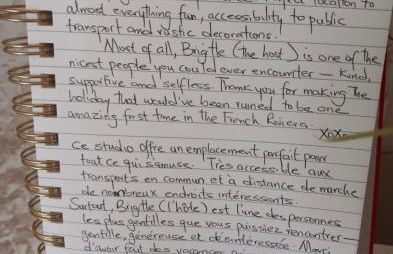 location to
almost everything fun, accessibility to public
transport and rustic decorations.
Most of all, Brigitte (the host) is one of the
nicest people you could ever encounter – Kind,
supportive and selfless. Thank you for making the
holiday that would've been ruined to be one
amazing first time in the French Riviera.
XoXo
Ce studio offre un emplacement parfait pour
tout ce qui s'amuse. Très accessible aux
transports en commun et à distance de marche
de nombreux endroits intéressants.
Surtout, Brigitte (l'hôte) est l'une des personnes
les plus gentilles que vous puissiez rencontrer –
gentille, généreuse et désintéressée. Merci
d'avoir fait des vacances